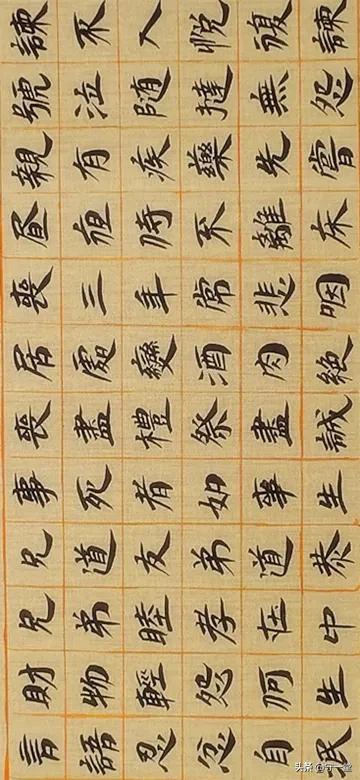 諫不入悦復諫
號泣随撻無怨
親有疾藥先嘗
昼夜侍不離床
喪三年常悲咽
居處變酒肉絶
喪盡禮祭盡誠
事死者如事生
兄道友弟道恭
兄弟睦孝在中
財物輕怨何生
言語忍忿自泯
头条 @守一